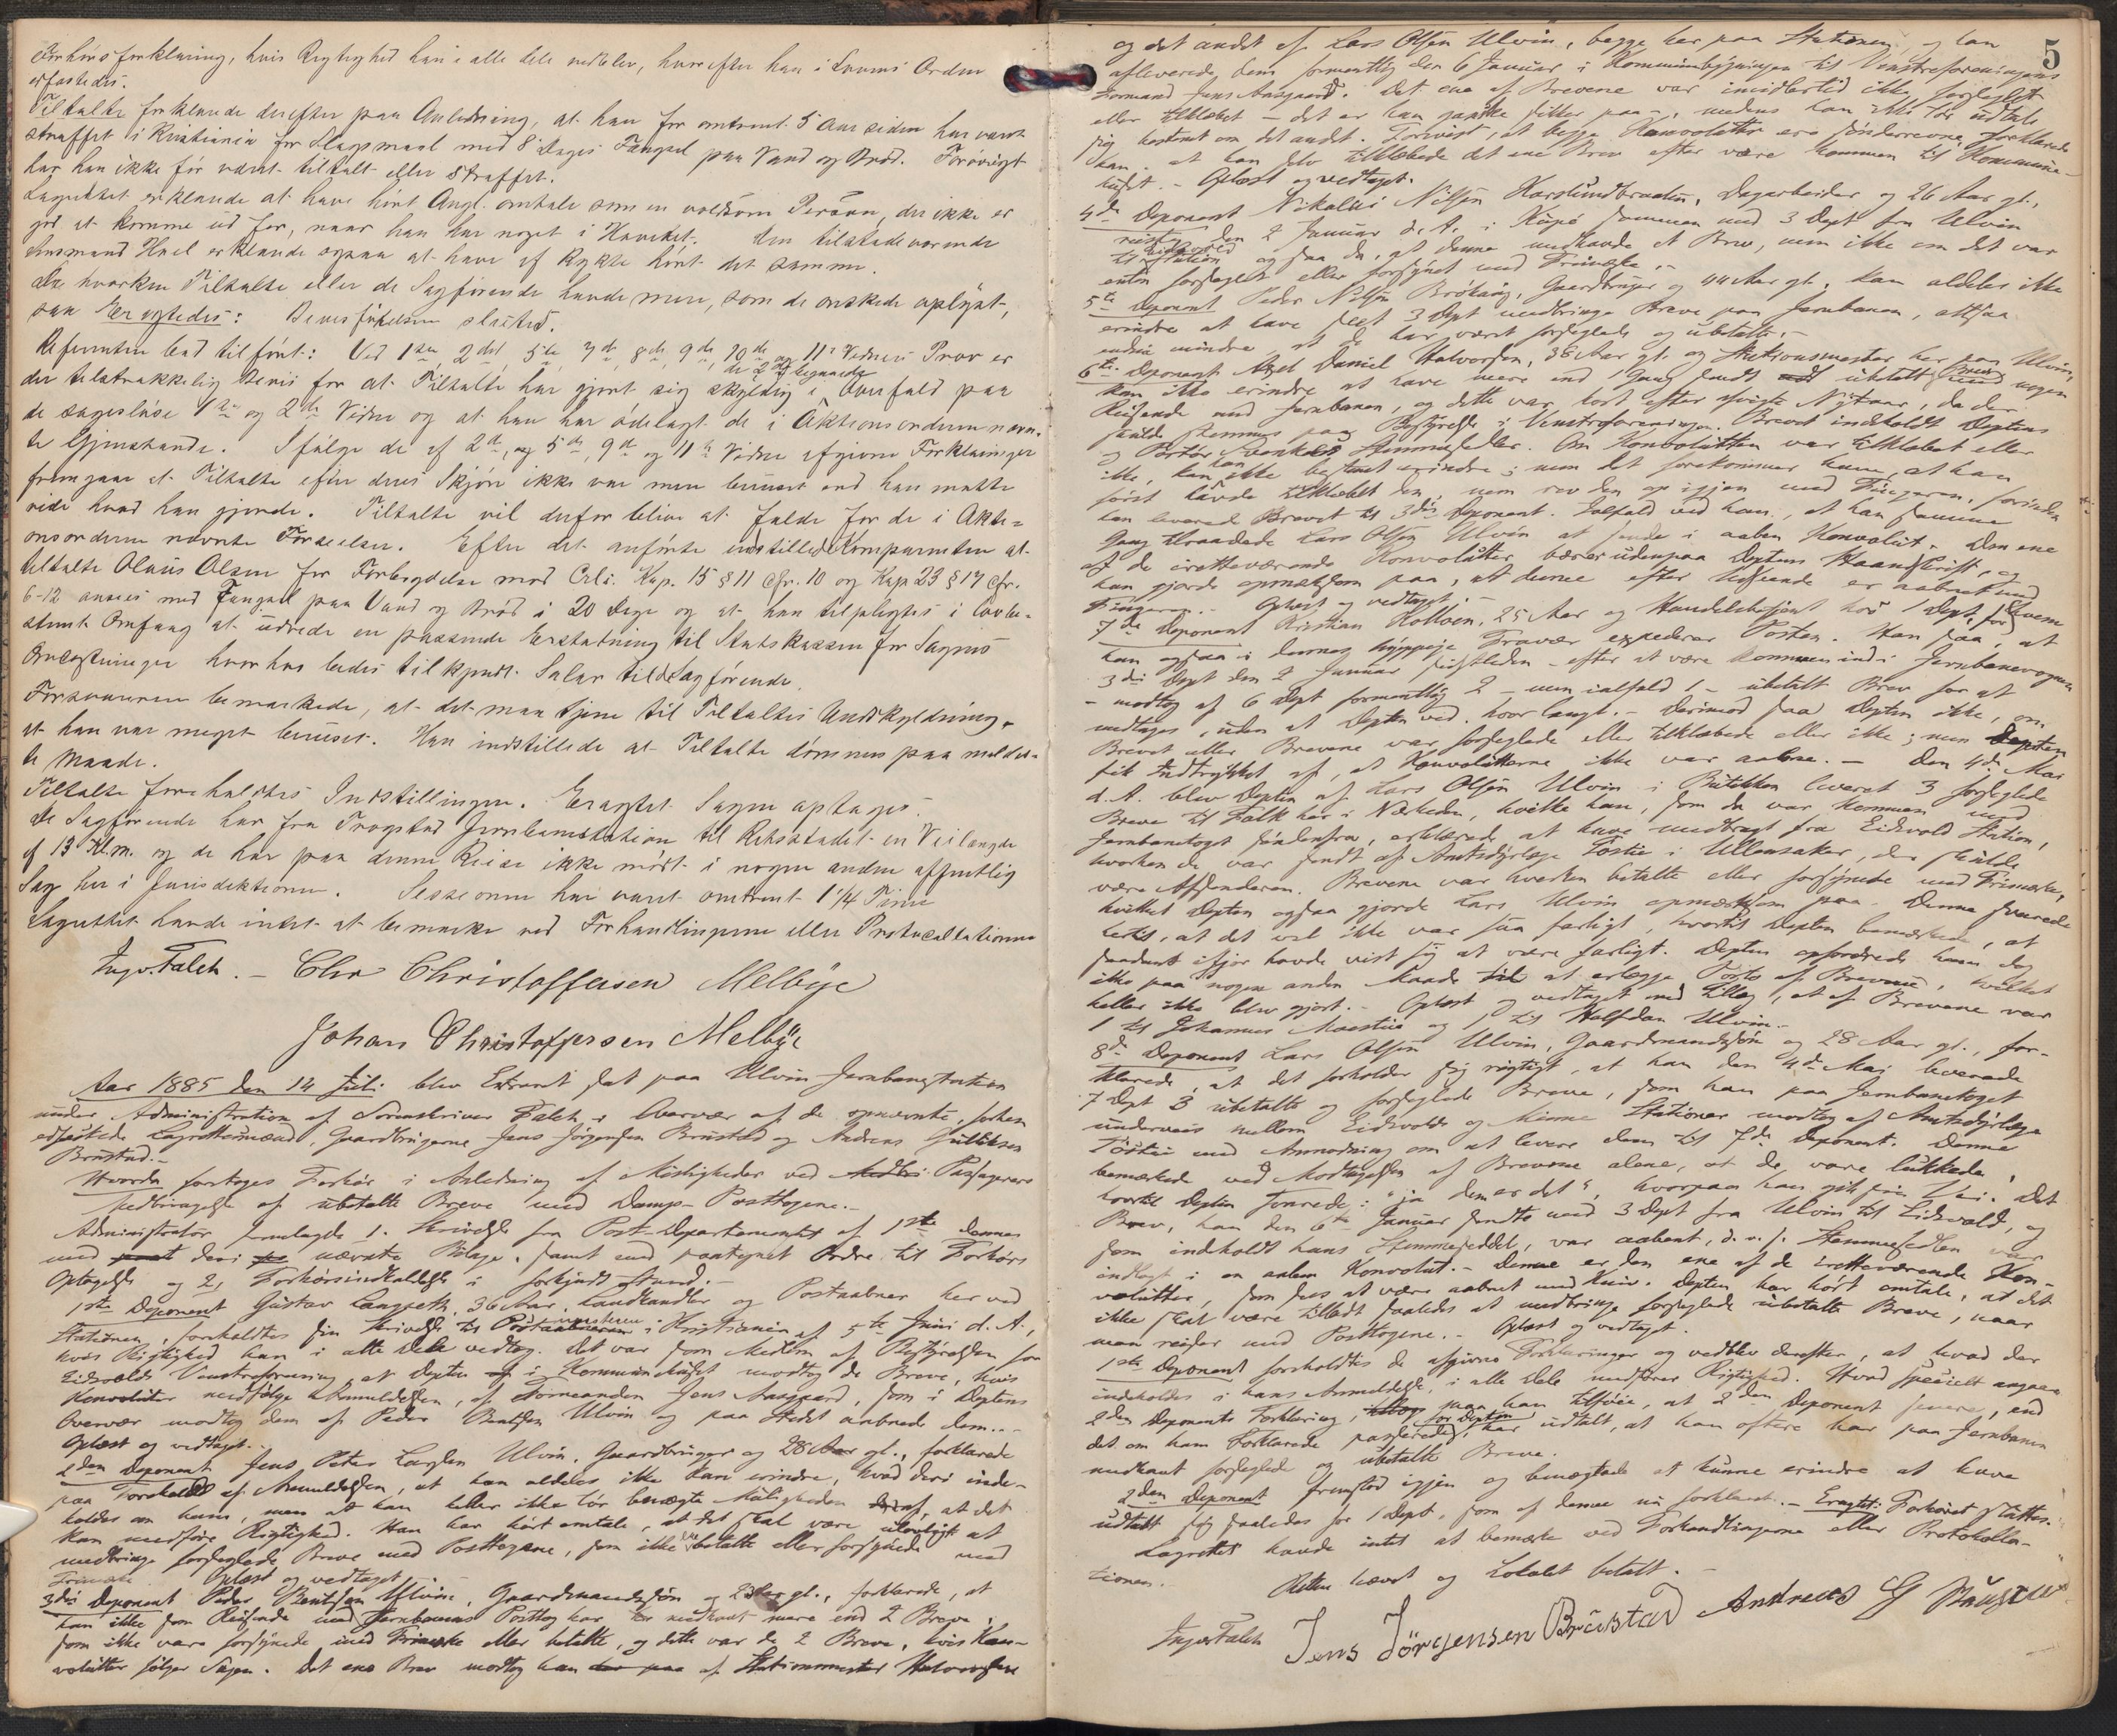 Forhørsforklaring, hvis Rigtighed han i alle dele vedblev, hvorefter han i Lovens Orden
edfæstedes.
Tiltalte forklarede derefter paa Anledning, at han for omtrent 5 Aar siden har været
straffet i Kristiania for Slagsmaal med 8 Dages Fængsel paa Vand og Brød. Forøvrigt
har han ikke før været tiltalt eller straffet.
Lagrettet erklærede at have hørt Angl. omtale som en voldsom Person, der ikke er
god at komme ud for, naar han har noget i Hovedet. Den tilstedeværende
Lensmand Hoel erklærede ogsaa at have af Rygte hørt det samme.
Da hverken Tiltalte eller de Sagførende havde mere, som de ønskede oplyst,
saa Eragtedes: Bevisførelsen sluttes.
Referenten lod tilført: Ved 1ste, 2det, 5te, 7de, 8de, 9de, 10de og 11te Vidners Prov er
der tilstrækkelig Bevis for at Tiltalte har gjort sig skyldig i Overfald paa
de sagesløse 1ste og 2det Vidne og at han har ødelagt de i Aktionsordren nævn-
te Gjenstande. Ifølge de af 2det, og 5te, 9de og 11te Vidne afgivne Forklaringer
fremgaar at Tiltalte efter deres Skjøn ikke var mere beruset end han maatte
vide hvad han gjorde. Tiltalte vil derfor blive at fælde for de i Akti-
onsordren nævnte Forseelser. Efter det anførte indstillede Komparenten at
tiltalte Olaus Olsen for Forbrydelse mod Crl. Kap. 15 § 11 cfr. 10 og Kap 23 § 17 cfr.
6-12 ansees med Fængsel paa Vand og Brød i 20 Dage og at han tilpligtes i lovbe-
stemt Omfang at udrede en passende Erstatning til Statskassen for Sagens
Omkostninger hvorhos bedes tilkjendt Salær til de Sagførende.
Forsvareren bemærkede, at det maa tjene til Tiltaltes Undskyldning,
at han var meget beruset. Han indstillede at Tiltalte dømmes paa mildes-
te Maade.
Tiltalte foreholdtes Indstillingen. Eragtet Sagen optages.
De Sagførende har fra Trogstad Jernbanestation til Retsstedet en Veilængde
af 13 Klm. og de har paa denne Reise ikke mødt i nogen anden offentlig
Sag her i Jurisdiktionen. Sessionen har varet omtrent 1 1/4 Time
Lagrettet havde intet at bemærke ved Forhandlingerne eller Protocollationen
Ingv. Falck. - Chr Christoffersen Melbye
Johan Christoffersen Melbye
Aar 1885 den 14 Juli blev Extraret sat paa Ulvin Jernbanestation
under Administration af Sorenskriver Falck i Overvær af de opnævnte, forhen
edfæstede Lagrettesmænd, Gaardbrugerne Jens Jørgensen Brustad og Andreas Gulliksen
Brustad.-
Hvorda foretoges Forhør i Anledning af Misligheder ved Passagerers
Medbringelse af ubetalte Breve med Damp-Posttogene.-
Administrator fremlagde 1. Skrivelse fra Post-Departementet af 1ste dennes
med deri nævnte Bilage, samt med paategnet Ordre til Forhørs
Optagelse og 2, Forhørsindkaldelse i forkyndt Stand.-
1ste Deponent Gustav Langseth, 36 Aar, Landhandler og Postaabner her ved
Stationen, foreholdtes sin Skrivelse til Postmesteren i Kristiania af 5te Juni d. A.,
hvis Rigtighed han i alle Dele vedtog. Det var som Medlem af Bestyrelsen for
Eidsvolds Venstreforening at Deptn i Kommunehuset modtog de Breve, hvis
Konvoluter medfølge Anmeldelsen, af Formanden Jens Aasgaard, som i Deptens
Overvær modtog dem af Peder Bentsen Ulvin og paa Stedet aabnede dem.-
Oplæst og vedtaget.-
2den Deponent Jens Peter Larsen Ulvin, Gaardbruger og 28 Aar gl., forklarede
paa Forehold af Anmeldelsen, at han aldeles ikke kan erindre, hvad deri inde-
holdes om ham, men at han heller ikke tør benægte Muligheden deraf, at det
kan medføre Rigtighed. Han har hørt omtale, at det skal være ulovligt at
medbringe forseglede Breve med Posttogene, som ikke ere betalte eller forsynede med
Frimærke. Oplæst og vedtaget.
3die Deponent Peder Bentsen Ulvin, Gaardmandssøn og 23 Aar gl., forklarede, at
han ikke som Reisende med Jernbanens Posttog har medhavt mere end 2 Breve,
som ikke vare forsynede med Frimærke eller betalte, og dette var de 2 Breve, hvis Kon-
volutter følger Sagen. Det ene Brev modtog han af Stationsmester Halvorsen
5
og det andet af Lars Olsen Ulvin, begge her paa Stationen, og han
afleverede dem formentlig den 6 Januar i Kommunebygningen til Venstreforeningens
Formand Jens Aasgaard. Det ene af Brevene var imidlertid ikke forseglet
eller tilklæbet - det er han ganske sikker paa -, medens han ikke tør udtale
sig bestemt om det andet. Forevist, at begge Konvolutter ere sønderrevne, forklarede
han, at han selv tilklæbede det ene Brev efter være kommen til Kommune-
huset. - Oplæst og vedtaget.
4de Deponent Nikolai Nilsen Harslundbraaten, Dagarbeider og 26 Aar gl.,
reiste den 2 Januar d. A. i Kupé sammen med 3 Dept fra Ulvin
til Eidsvold Station og saa da, at denne medhavde et Brev, men ikke om det var
enten forseglet eller forsynet med Frimærke.-
5te Deponent Peder Nilsen Brøhaug, Gaardbruger og 44 Aar gl., kan aldeles ikke
erindre at have seet 3 Dept medbringe Breve paa Jernbanen, altsaa
endnu mindre at de har været forseglede og ubetalte.-
6te Deponent Axel Daniel Halvorsen, 38 Aar gl. og Stationsmester her paa Ulvin,
kan ikke erindre at have mere end 1 Gang sendt ubetalt Brev med nogen
Reisende med Jernbanen, og dette var kort efter afvigte Nytaar, da der
skulde stemmes paa Bestyrelse i Venstreforeningen. Brevet indeholdt Deptens
og Portør Svenkes Stemmesedler. Om Konvolutten var tilklæbet eller
ikke, kan han ikke bestemt erindre; men det forekommer ham, at han
først havde tilklæbet den, men rev den op igjen med Fingeren, forinden
han leverede Brevet til 3die Deponent. Ialfald ved han, at han samme
Gang tilraadede Lars Olsen Ulvin at sende i aaben Konvolut. Den ene
af de iretteværende Konvolutter bærer udenpaa Deptens Haandskrift, og
han gjorde opmærksom paa, at denne efter Udseende er aabnet med
Fingeren. - Oplæst og vedtaget.-
7de Deponent Kristian Kolloen, 25 Aar og Handelsbetjent hos 1 Dept, for hvem
han ogsaa i dennes hyppige Fravær expederer Posten. Han saa, at
3die Dept den 2 Januar sidstleden - efter at være kommen ind i Jernbanevognen
- modtog af 6 Dept formentlig 2 - men ialfald 1 - ubetalt Brev for at
medtages, uden at Depten ved, hvor langt. - Derimod saa Depten ikke, om
Brevet eller Brevene var forseglede eller tilklæbede eller ikke; men Depten
fik Indtrykket af, at Konvolutterne ikke var aabne. - Den 4de Mai
d. A. blev Depten af Lars Olsen Ulvin i Butikken leveret 3 forseglede
Breve til Folk her i Nærheden, hvilke han, som da var kommen med
Jernbanetoget søndenfra, erklærede at have medbragt fra Eidsvold Station,
hvorhen de var sendt af Amtsdyrlæge Tostie i Ullensaker, der skulde
være Afsenderen. Brevene var hverken betalte eller forsynede med Frimærke,
hvilket Depten ogsaa gjorde Lars Ulvin opmærksom paa. Denne svarede
hertil, at det vel ikke var saa farligt, hvortil Depten bemærkede, at
saadant ifjor havde vist sig at være farligt. Depten opfordrede ham dog
ikke paa nogen anden Maade til at erlægge Porto af Brevene, hvilket
heller ikke blev gjort. - Oplæst og vedtaget med Tillæg, at af Brevene var
1 til Johannes Maastue og 1 til Halfdan Ulvin.-
8de Deponent Lars Olsen Ulvin, Gaardmandssøn og 28 Aar gl., for-
klarede, at det forholder sig rigtigt, at han den 4de Mai leverede
7 Dept 3 ubetalte og forseglede Breve, som han paa Jernbanetoget
underveis mellem Eidsvold og Minne Stationer modtog af Amtsdyrlæge
Tostie med Anmodning om at levere dem til 7de Deponent. Denne
bemærkede ved Modtagelsen af Brevene alene, at de vare lukkede,
hvortil Depten svarede: "ja dem er det", hvorpaa han gik sin Vei. Det
Brev, han den 6te Januar sendte med 3 Dept fra Ulvin til Eidsvold, og
som indeholdt hans Stemmeseddel, var aabent, d. v. s. Stemmesedlen var
indlagt i en aaben Konvolut. - Denne er den ene af de iretteværende Kon-
volutter, som sees at være aabnet med Kniv. Depten har hørt omtale, at det
ikke skal være tilladt saaledes at medbringe forseglede ubetalte Breve, naar
man reiser med Posttogene. - Oplæst og vedtaget.
1ste Deponent foreholdtes de afgivne Forklaringer og vedblev derefter, at hvad der
indeholdes i hans Anmeldelse, i alle Dele medfører Rigtighed. Hvad specielt angaar
2den Deponents Forklaring, maa han tilføie, at 2den Deponent senere, end
det om ham Forklarede passerede, for Depten har udtalt, at han oftere har paa Jernbanen
medhavt forseglede og ubetalte Breve.
2den Deponent fremstod igjen og benægtede at kunne erindre at have
udtalt sig saaledes for 1 Dept, som af denne nu forklaret. - Eragtet: Forhøret sluttes.
Lagrettet havde intet at bemærke ved Forhandlingerne eller Protokolla-
tionen.
Retten hævet og Lokalet betalt.-
Ingv. Falck Jens Jörgensen Bråstad Andreas G Bråstad